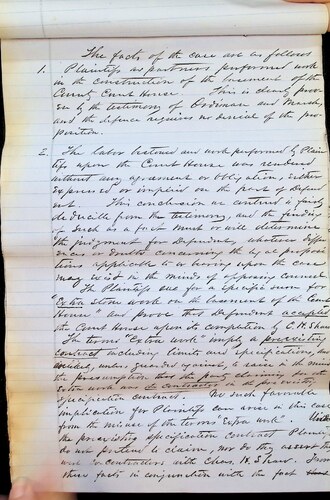 The facts of the case are as follows
1. Plaintiffs as partners performed work
in the construction of the basement of the
County Court House. This is clearly prov-
en by the testimony of and
and the defence requires no denial of the pro-
position.
2. The labor bestowed and work performed by Plain-
tiffs upon the Court House was rendered
without any agreement or obligation, either
expressed or implied on the part of Defend-
ent. This conclusion we contend is fairly
deducible from the testimony, and the finding
of such as a fact must or will determine
the judgment for Defendent, whatever differ-
ences or doubts concerning the legal proposi-
tions applicable to or having upon the case
may exist in the minds of opposing counsel.
The Plaintiffs sue for a specific sum for
"Extra stone work on the basement of the Court
House" and prove that Defendent accepted
the Court House upon its completion by C. H. Shaw
The terms "Extra work" imply a preexisting
contract including limits and specifications, and
would, unless guarded against, raise in the mind
the presumption that the party claiming for such
extra work was the contractor in the preexisting
specification contract. No such favorable
implication for Plaintiffs can arise in this case
from the misuse of the terms Extra work. Under
the preexisting specification contract Plaintiffs
do not pretend to claim, nor do they assert that
were contractors with Chas. H. Shaw. From
these facts in conjunction with the fact